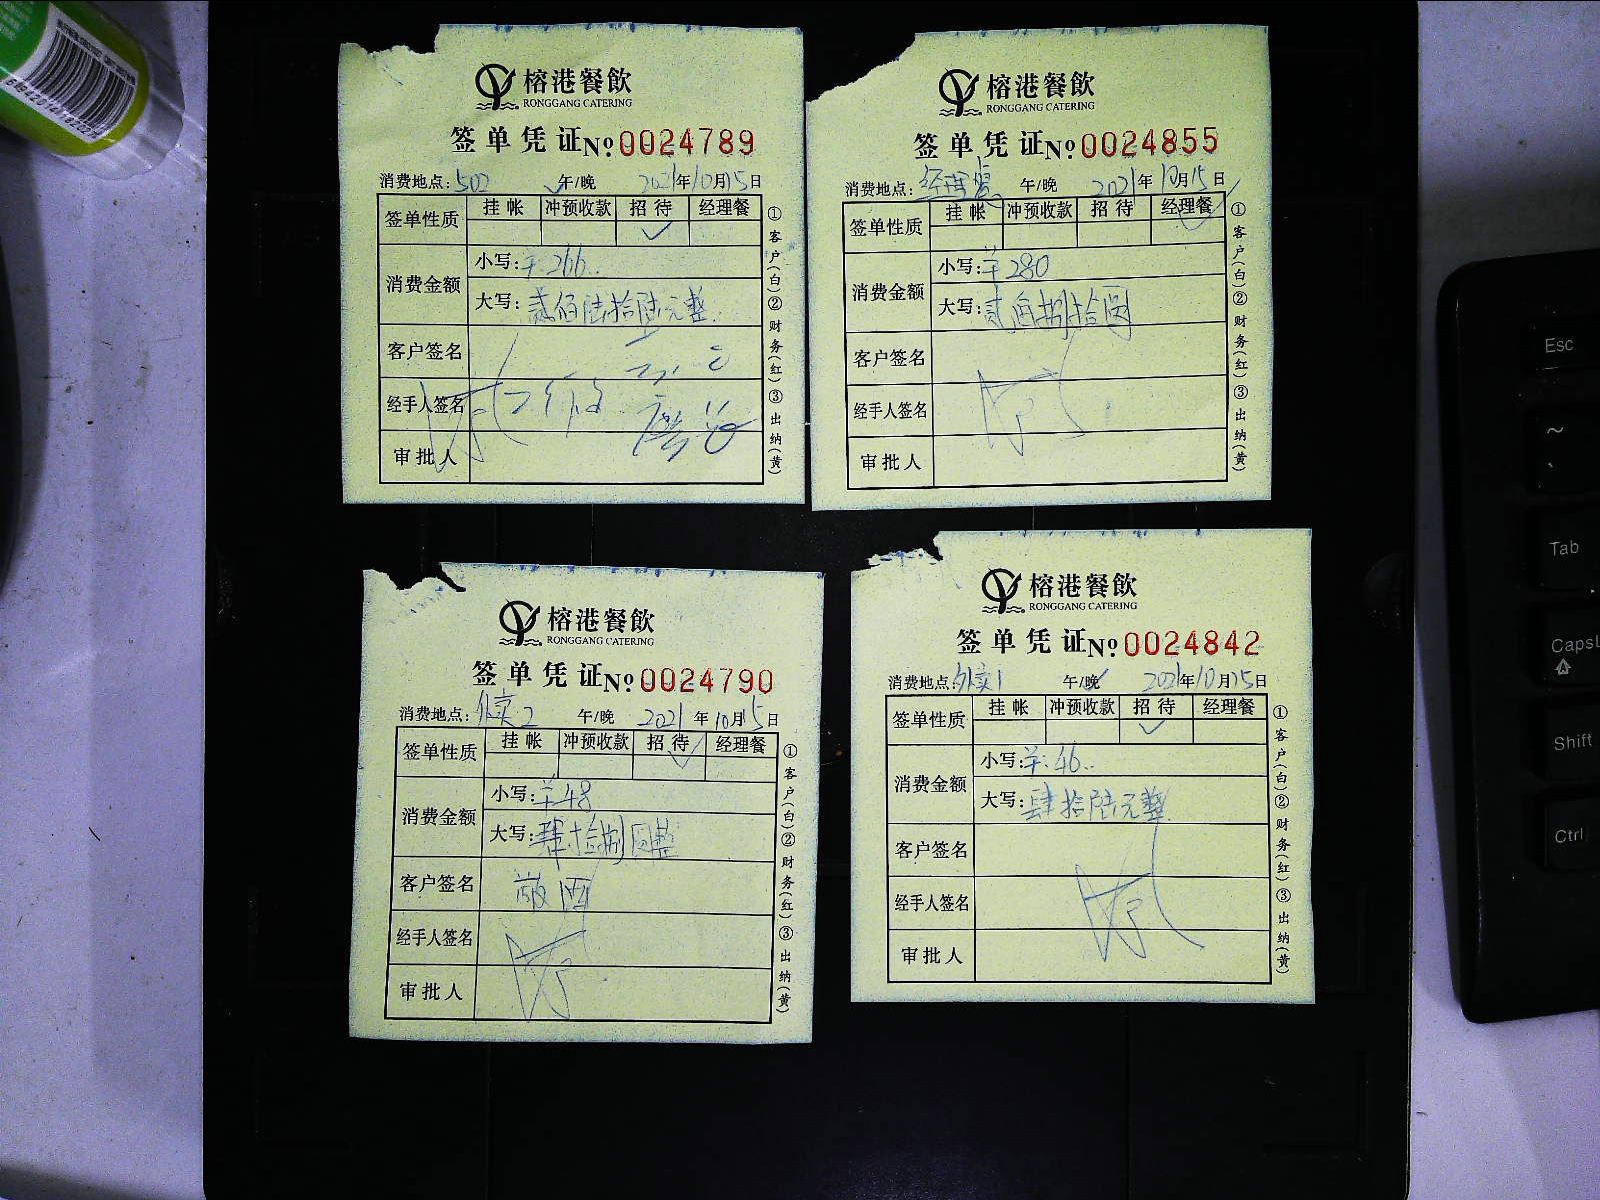 榕港餐飲
RONGGANG CATERING
签单凭证 No 0024789
消费地点: 502 午/晚 2021年10月15日
签单性质 挂帐 冲预收款 招待 经理餐
消费金额 小写: ¥266
大写: 贰佰陆拾陆元整
客户签名
经手人签名
审批人
①客户(白)②财务(红)③出纳(黄)
榕港餐飲
RONGGANG CATERING
签单凭证 No 0024855
消费地点: 经理餐 午/晚 2021年10月15日
签单性质 挂帐 冲预收款 招待 经理餐
消费金额 小写: ¥280
大写: 贰佰捌拾圆
客户签名
经手人签名
审批人
①客户(白)②财务(红)③出纳(黄)
榕港餐飲
RONGGANG CATERING
签单凭证 No 0024790
消费地点: 外卖2 午/晚 2021年10月15日
签单性质 挂帐 冲预收款 招待 经理餐
消费金额 小写: ¥48
大写: 肆拾捌圆整
客户签名
经手人签名
审批人
①客户(白)②财务(红)③出纳(黄)
榕港餐飲
RONGGANG CATERING
签单凭证 No 0024842
消费地点: 外卖1 午/晚 2021年10月15日
签单性质 挂帐 冲预收款 招待 经理餐
消费金额 小写: ¥46
大写: 肆拾陆元整
客户签名
经手人签名
审批人
①客户(白)②财务(红)③出纳(黄)
Esc
~
Tab
Caps
Shift
Ctrl